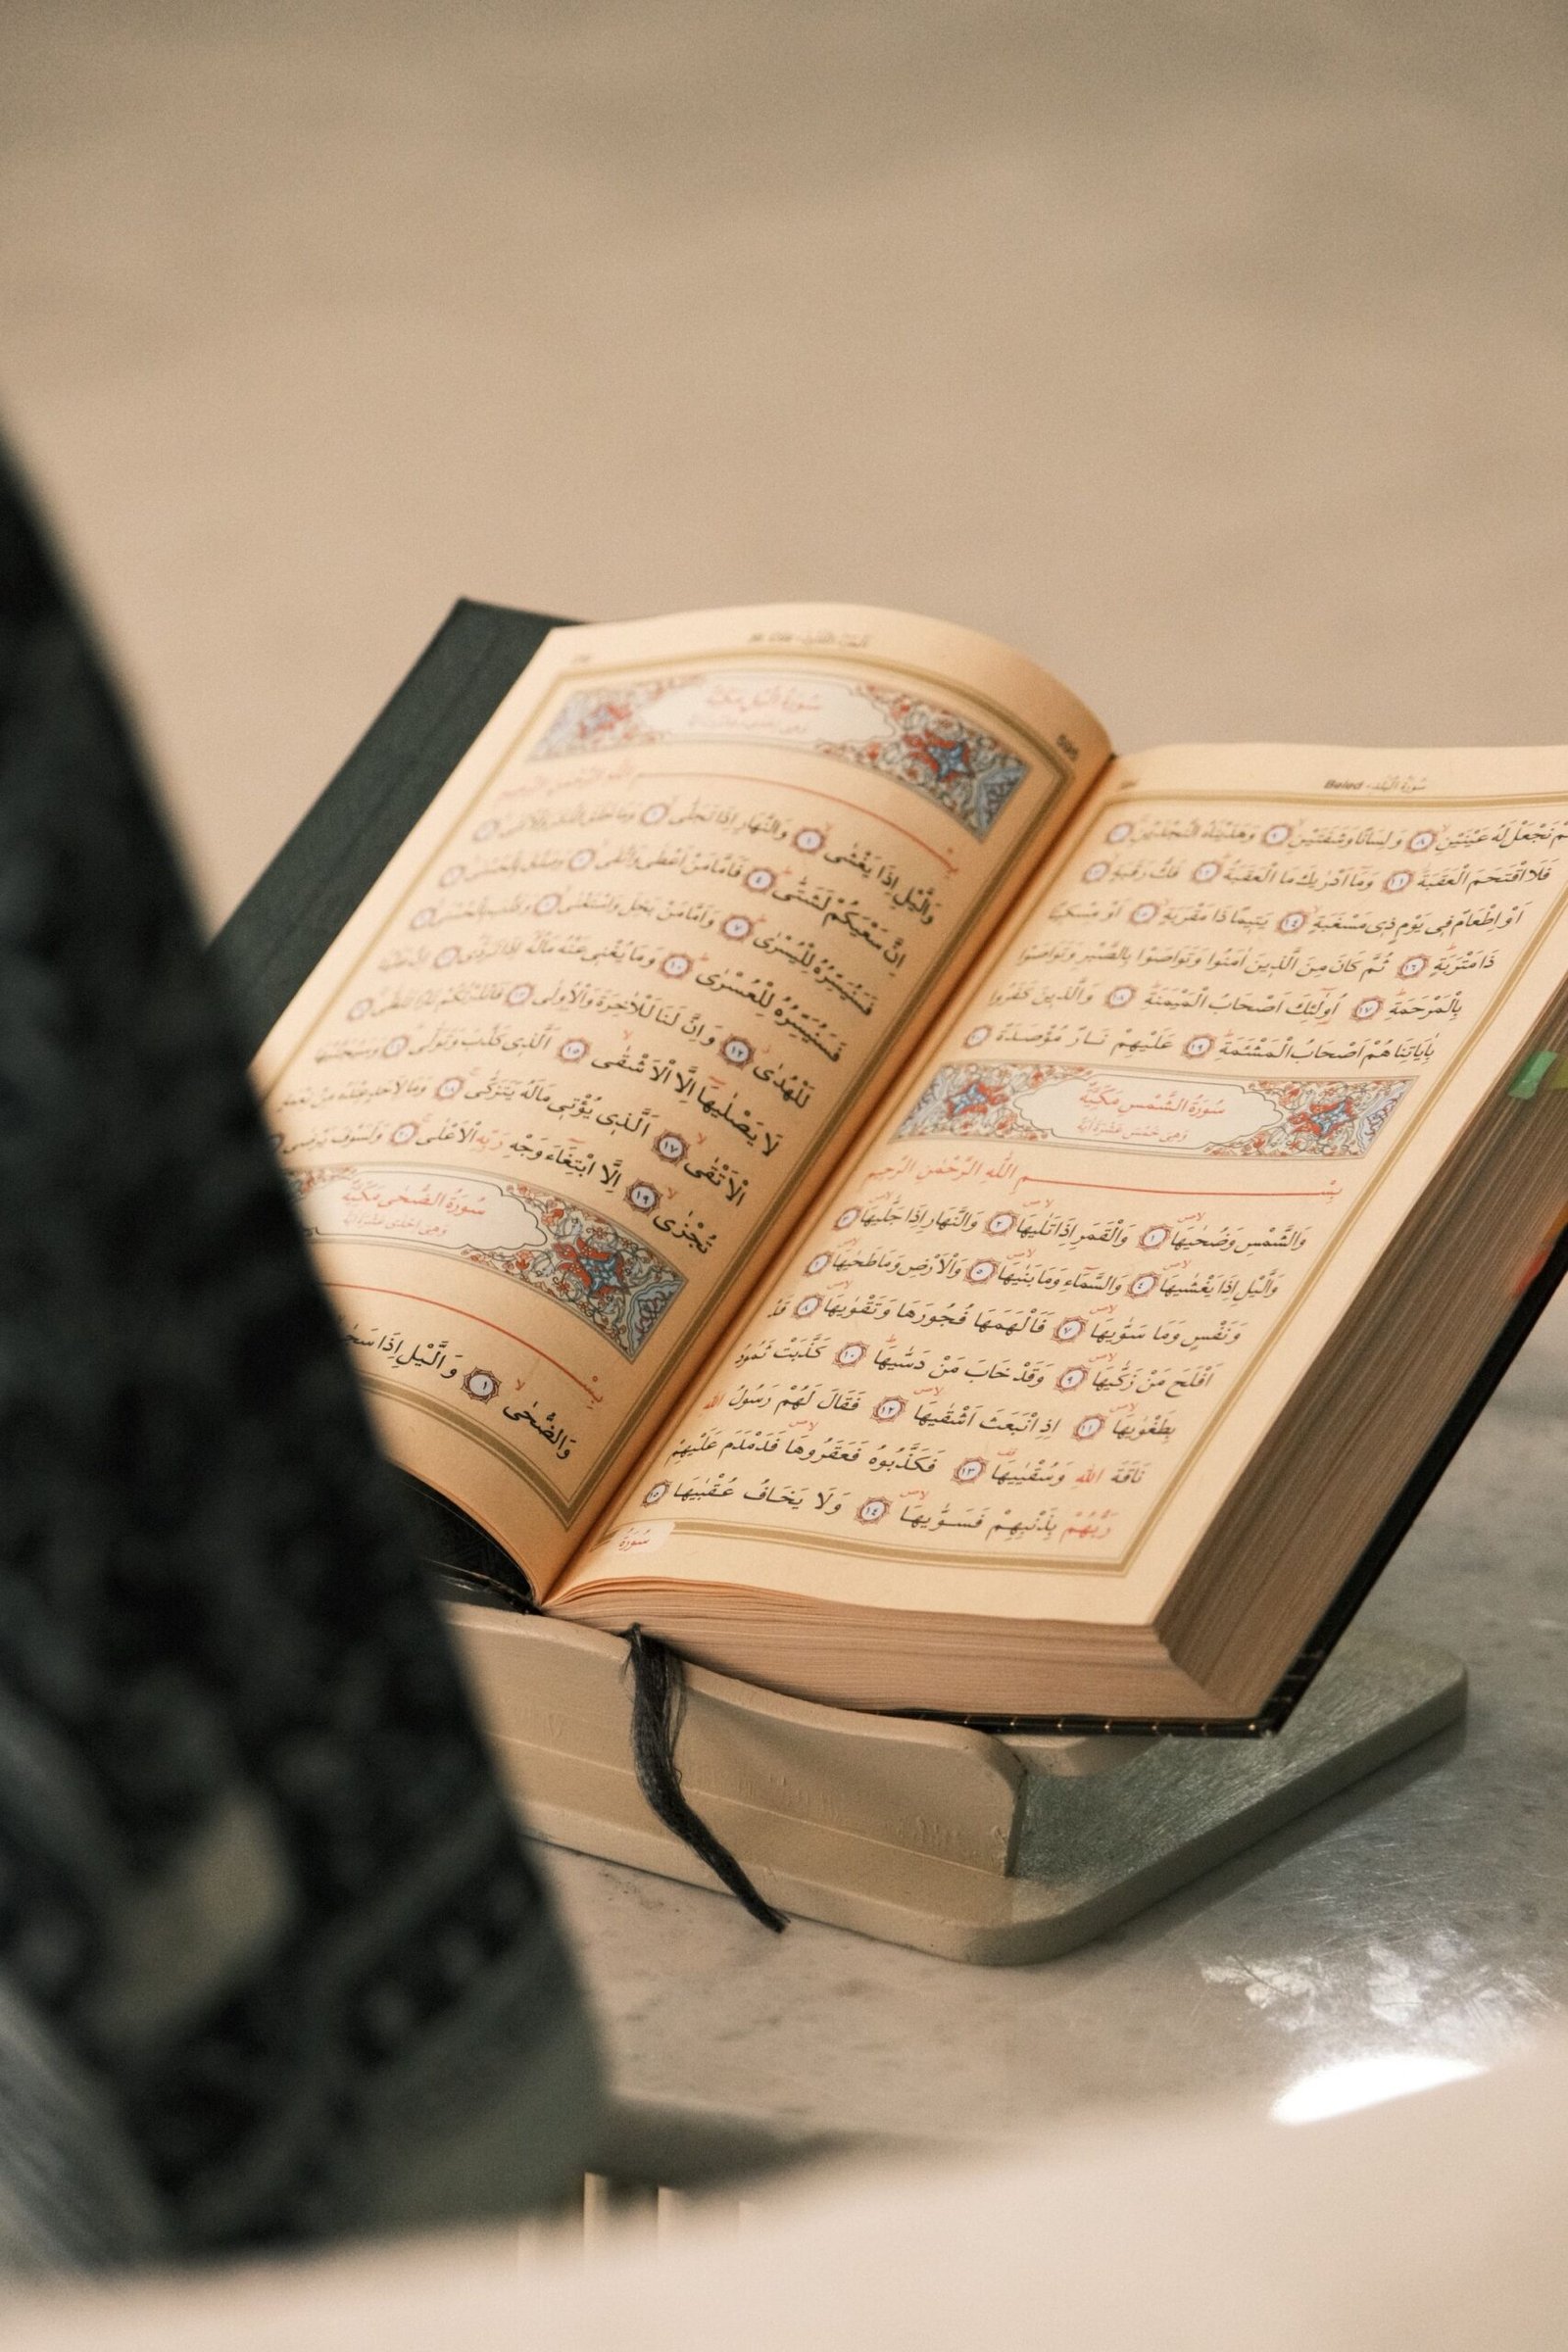 Beled - سُورَةُ الْبَلَدِ
نَجْعَلْ لَهُ عَيْنَيْنِ ﴿٨﴾ وَلِسَانًا وَشَفَتَيْنِ ﴿٩﴾ وَهَدَيْنَاهُ النَّجْدَيْنِ ﴿١٠﴾
فَلَا اقْتَحَمَ الْعَقَبَةَ ﴿١١﴾ وَمَا اَدْرٰيكَ مَا الْعَقَبَةُ ﴿١٢﴾ فَكُّ رَقَبَةٍ ﴿١٣﴾
اَوْ اِطْعَامٌ فِى يَوْمٍ ذِى مَسْغَبَةٍ ﴿١٤﴾ يَتِيمًا ذَا مَقْرَبَةٍ ﴿١٥﴾ اَوْ مِسْكِينًا
ذَا مَتْرَبَةٍ ﴿١٦﴾ ثُمَّ كَانَ مِنَ الَّذِينَ اٰمَنُوا وَتَوَاصَوْا بِالصَّبْرِ وَتَوَاصَوْا
بِالْمَرْحَمَةِ ﴿١٧﴾ اُولٰئِكَ اَصْحَابُ الْمَيْمَنَةِ ﴿١٨﴾ وَالَّذِينَ كَفَرُوا
بِاٰيَاتِنَا هُمْ اَصْحَابُ الْمَشْئَمَةِ ﴿١٩﴾ عَلَيْهِمْ نَارٌ مُؤْصَدَةٌ ﴿٢٠﴾
سُورَةُ الشَّمْسِ مَكِّيَّةٌ
وَهِىَ خَمْسَ عَشْرَةَ اٰيَةً
بِسْمِ اللّٰهِ الرَّحْمٰنِ الرَّحِيمِ
وَالشَّمْسِ وَضُحٰيهَا ﴿١﴾ وَالْقَمَرِ اِذَا تَلٰيهَا ﴿٢﴾ وَالنَّهَارِ اِذَا جَلّٰيهَا ﴿٣﴾
وَالَّيْلِ اِذَا يَغْشٰيهَا ﴿٤﴾ وَالسَّمَاءِ وَمَا بَنٰيهَا ﴿٥﴾ وَالْاَرْضِ وَمَا طَحٰيهَا ﴿٦﴾
وَنَفْسٍ وَمَا سَوّٰيهَا ﴿٧﴾ فَاَلْهَمَهَا فُجُورَهَا وَتَقْوٰيهَا ﴿٨﴾ قَدْ
اَفْلَحَ مَنْ زَكّٰيهَا ﴿٩﴾ وَقَدْ خَابَ مَنْ دَسّٰيهَا ﴿١٠﴾ كَذَّبَتْ ثَمُودُ
بِطَغْوٰيهَا ﴿١١﴾ اِذِ انْبَعَثَ اَشْقٰيهَا ﴿١٢﴾ فَقَالَ لَهُمْ رَسُولُ اللّٰهِ
نَاقَةَ اللّٰهِ وَسُقْيٰيهَا ﴿١٣﴾ فَكَذَّبُوهُ فَعَقَرُوهَا فَدَمْدَمَ عَلَيْهِمْ
رَبُّهُمْ بِذَنْبِهِمْ فَسَوّٰيهَا ﴿١٤﴾ وَلَا يَخَافُ عُقْبٰيهَا ﴿١٥﴾
سُورَةُ
سُورَةُ الَّيْلِ مَكِّيَّةٌ
وَالَّيْلِ اِذَا يَغْشٰى ﴿١﴾ وَالنَّهَارِ اِذَا تَجَلّٰى ﴿٢﴾ وَمَا خَلَقَ الذَّكَرَ وَالْاُنْثٰى ﴿٣﴾
اِنَّ سَعْيَكُمْ لَشَتّٰى ﴿٤﴾ فَاَمَّا مَنْ اَعْطٰى وَاتَّقٰى ﴿٥﴾ وَصَدَّقَ بِالْحُسْنٰى ﴿٦﴾
فَسَنُيَسِّرُهُ لِلْيُسْرٰى ﴿٧﴾ وَاَمَّا مَنْ بَخِلَ وَاسْتَغْنٰى ﴿٨﴾ وَكَذَّبَ بِالْحُسْنٰى ﴿٩﴾
فَسَنُيَسِّرُهُ لِلْعُسْرٰى ﴿١٠﴾ وَمَا يُغْنِى عَنْهُ مَالُهُ اِذَا تَرَدّٰى ﴿١١﴾ اِنَّ عَلَيْنَا
لَلْهُدٰى ﴿١٢﴾ وَاِنَّ لَنَا لَلْاٰخِرَةَ وَالْاُولٰى ﴿١٣﴾ فَاَنْذَرْتُكُمْ نَارًا تَلَظّٰى ﴿١٤﴾
لَا يَصْلٰيهَا اِلَّا الْاَشْقٰى ﴿١٥﴾ اَلَّذِى كَذَّبَ وَتَوَلّٰى ﴿١٦﴾ وَسَيُجَنَّبُهَا
الْاَتْقٰى ﴿١٧﴾ اَلَّذِى يُؤْتِى مَالَهُ يَتَزَكّٰى ﴿١٨﴾ وَمَا لِاَحَدٍ عِنْدَهُ مِنْ نِعْمَةٍ
تُجْزٰى ﴿١٩﴾ اِلَّا ابْتِغَاءَ وَجْهِ رَبِّهِ الْاَعْلٰى ﴿٢٠﴾ وَلَسَوْفَ يَرْضٰى
سُورَةُ الضُّحٰى مَكِّيَّةٌ
وَهِىَ اِحْدٰى عَشْرَةَ اٰيَةً
بِسْـ
وَالضُّحٰى ﴿١﴾ وَالَّيْلِ اِذَا سَجٰى